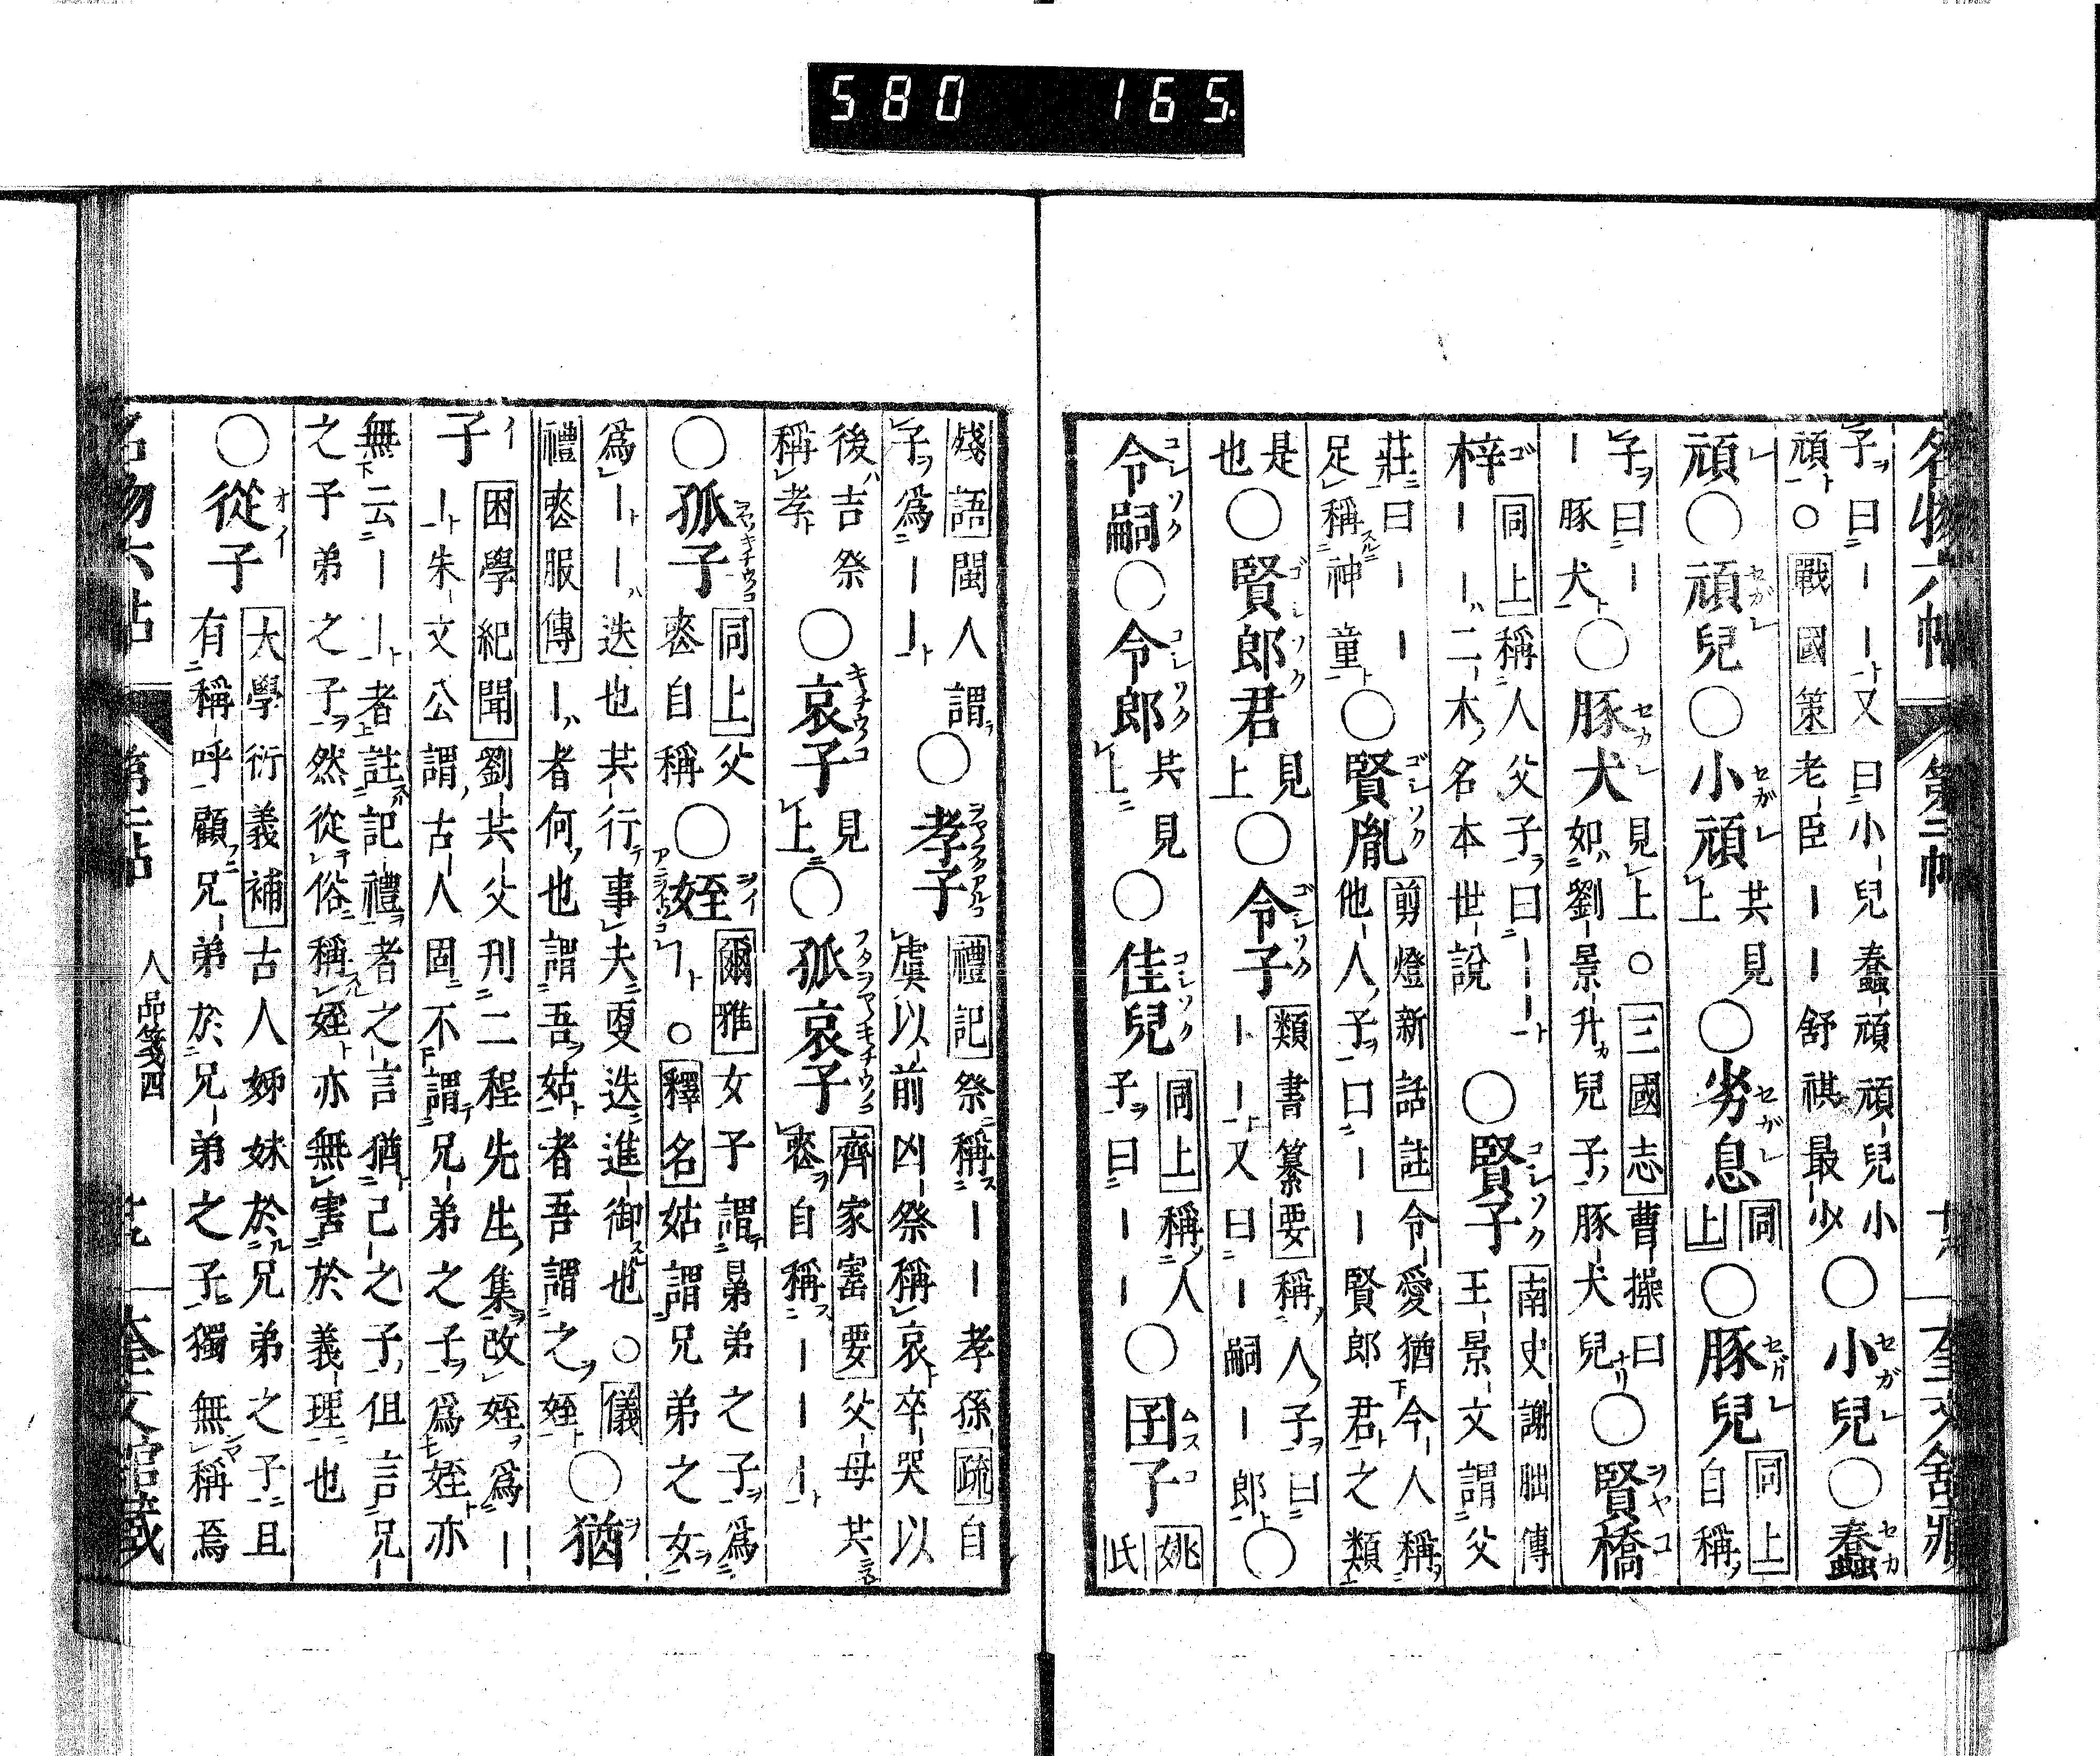 580 165.
名物六帖 第二帖 奎文館藏
子曰ーー又曰小兒蠢頑頑兒小
頑○戰國策老臣ーー舒祺最少
○小兒○蠢
頑○頑兒○小頑
共見
上
○劣息
同
上
○豚兒
同上
自稱
子曰ー
ー豚犬
○豚犬
見上○三國志曹操曰
如劉景升兒子豚犬兒
○賢橋
梓
同上稱人父子曰ーーー
ーーー二木名本世說
○賢子
南史謝朏傳
王景文謂父
莊曰ーー
足稱神童
○賢胤
剪燈新話註令愛猶今人稱
他人子曰ーー賢郎君之類
是
也
○賢郎君
見
上
○令子
類書纂要稱人子曰
ーー又曰ー嗣ー郎
○
令嗣○令郎
共見
上
○佳兒
同上稱人
子曰ーー
○囝子
姚
氏
殘語閩人謂
子爲ーー
○孝子
禮記祭稱ーー孝孫疏自
虞以前凶祭稱哀卒哭以
後吉祭
稱孝
○哀子
見
上
○孤哀子
齊家寶要父母共
喪自稱ーーー
○孤子
同上父
喪自稱
○姪
爾雅女子謂晜弟之子爲
ー○釋名姑謂兄弟之女
爲ーー迭也共行事夫更迭進御也○儀
禮喪服傳ー者何也謂吾姑者吾謂之姪
○猶
子
困學紀聞劉共父刊二程先生集改姪爲ー
ー朱文公謂古人固不謂兄弟之子爲姪亦
無云ーー者註記禮者之言猶己之子但言兄
之子弟之子然從俗稱姪亦無害於義理也
○從子
大學衍義補古人姊妹於兄弟之子且
有稱呼顧兄弟於兄弟之子獨無稱焉
名物六帖 第二帖 人品箋四 奎文館藏